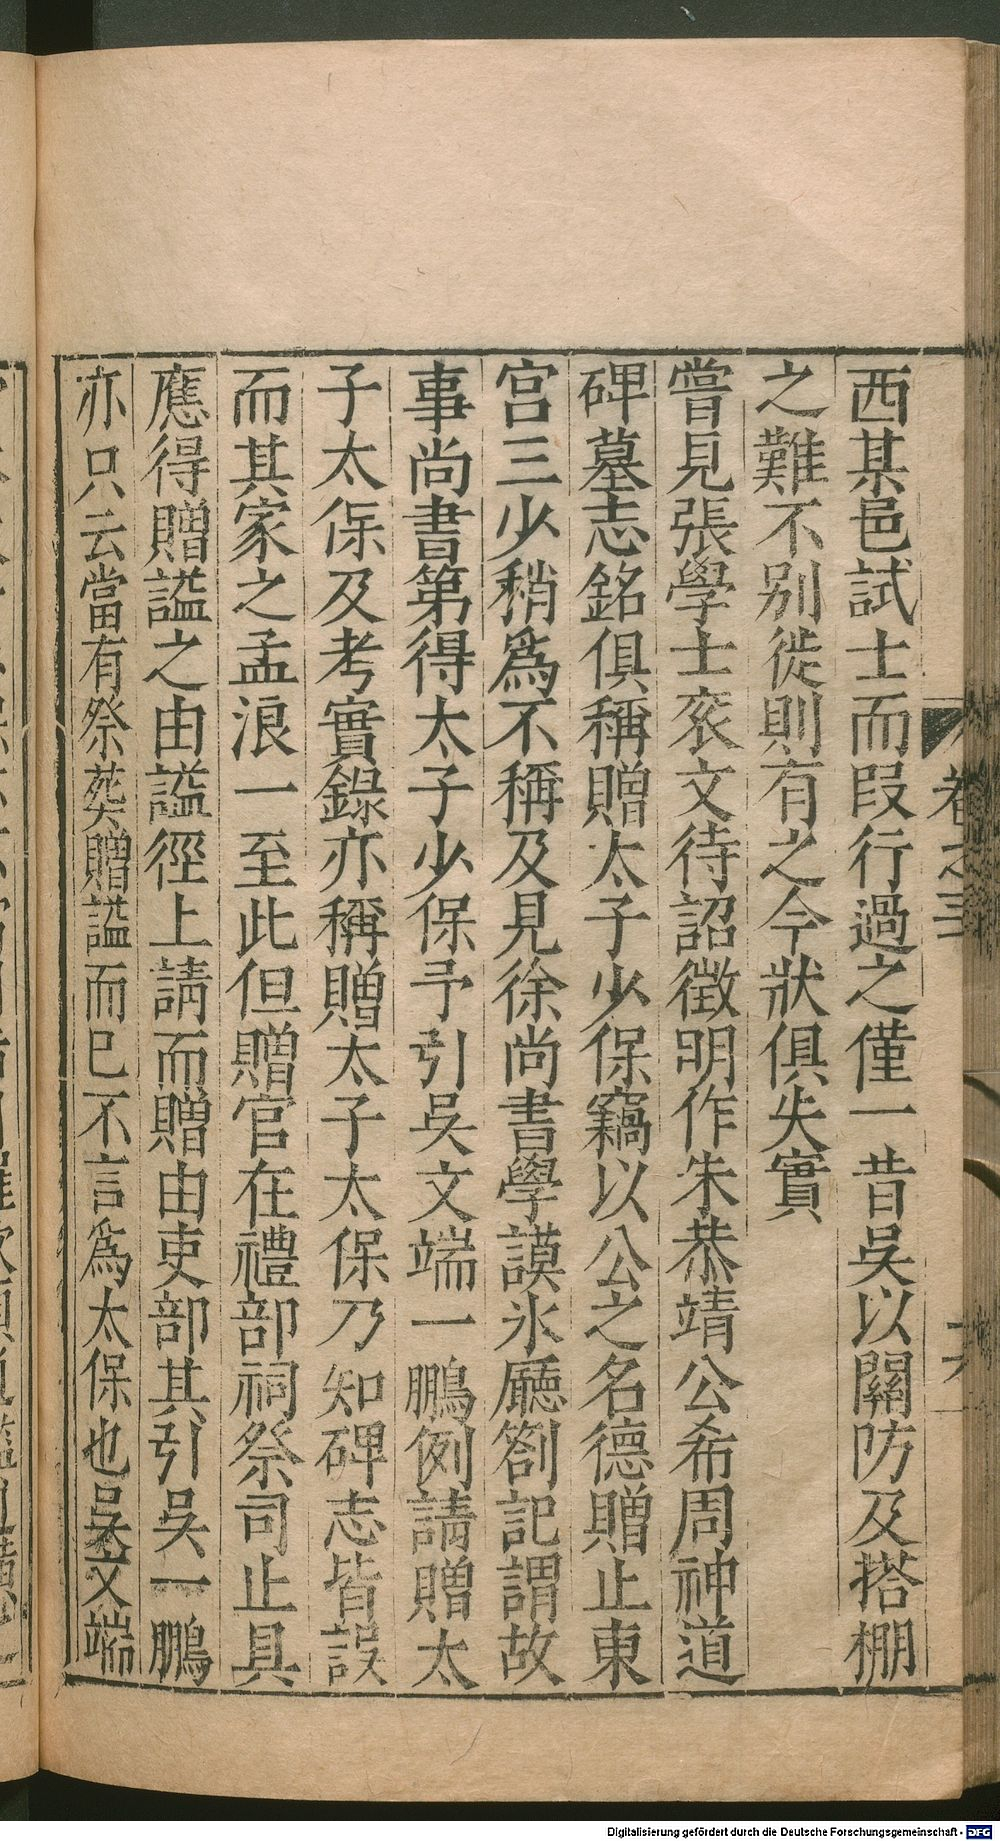 西某邑試士而叚行過之僅一昔吳以關防及搭棚
之難不别徙則有之今狀俱失實
嘗見張學士衮文待詔徵明作朱恭靖公希周神道
碑墓志銘俱稱贈太子少保竊以公之名德贈止東
宫三少稍爲不稱及見徐尚書學謨氷廳劄記謂故
事尚書第得太子少保予引吳文端一鵬例請贈太
子太保及考實錄亦稱贈太子太保乃知碑志皆誤
而其家之孟浪一至此但贈官在禮部祠祭司止具
應得贈謚之由謚徑上請而贈由吏部其引吳一鵬
亦只云當有祭葬贈謚而已不言爲太保也吳文端
卷之三
Digitalisierung gefördert durch die Deutsche Forschungsgemeinschaft - DFG